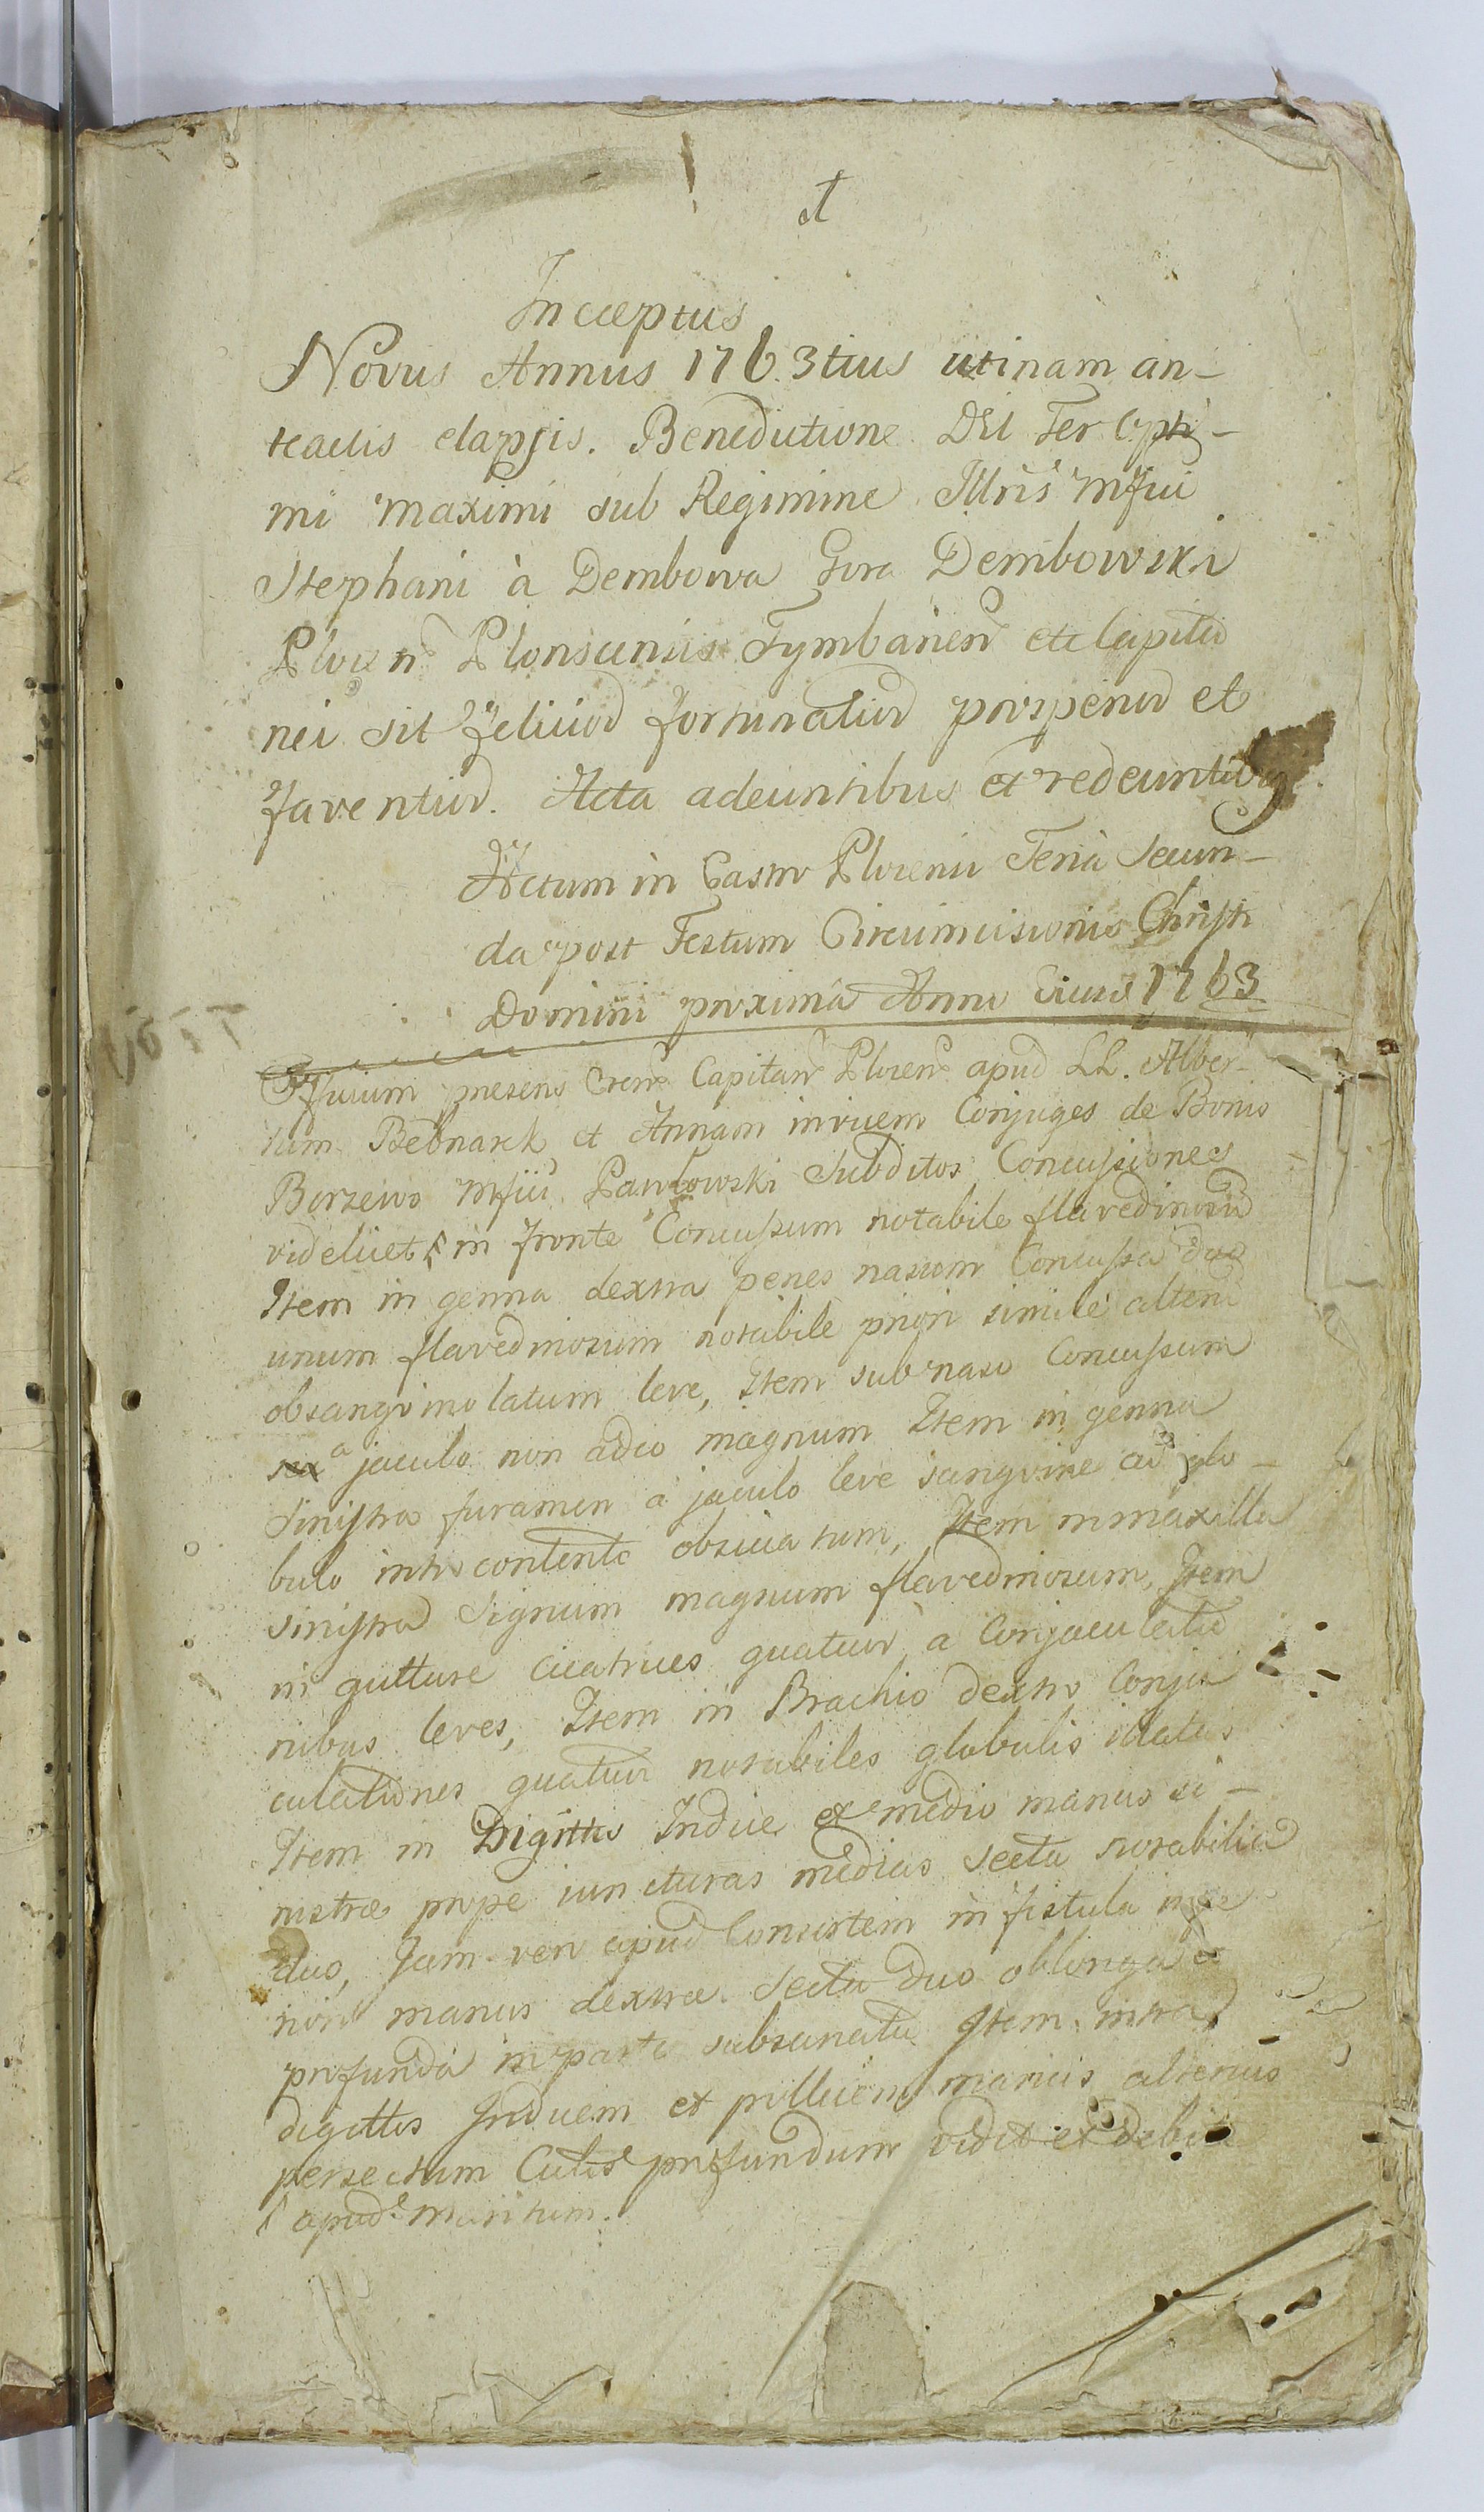 Incæptus
Novus Annus 1763tius utinam an-
teactis elapsis. Benedictione Dei Ter Opti-
mi Maximi sub Regimine Illris Mfici
Stephani à Dembowa Gora Dembowski
Plocen Plonscensis Tymbarien etc Capita
nei sit felicior fortunatior prosperior et
faventior. Acta adeuntibus et redeuntibus
Actum in Castro Plocensi Feria Secun-
da post Festum Circumcisionis Christi
Domini proxima Anno Eius 1763
Officium presens Cren Capitan Plocen apud LL. Alber-
tum Bebnarek et Annam invicem Conjuges de Bonis
Borzewo Mfici Pawlowski Subditos Concussiones
videlicet in fronte Concussum notabile flavedinosum
Item in genna dextra penes nasum Concussa duo
unum flavedinosum notabile priori simile alterum
obsangvinolatum leve, Item sub naso Concussum
a jaculo non adeo magnum Item in genna
Sinistra foramen a jaculo leve sangvine cum glo-
bulo intro contento obsiccatum, Item in maxilla
sinistra Signum magnum flavedinosum, Item
in gutture cicatrices quatuor a Conjaculatio
nibus leves, Item in Brachio dextro Conja
culationes quatuor notabiles globulis illatas
Item in Digittis Indice et medio manus si-
nistræ prope iuncturas medias secta notabilia
duo, Jam vero apud Consortem in fistula
manus dextræ Secta duo oblonga et
profunda in parte subsanata Item intra
digittos Indicem et pollicem manus alterius
persectum Cutis profundum vidit et
apud maritum.